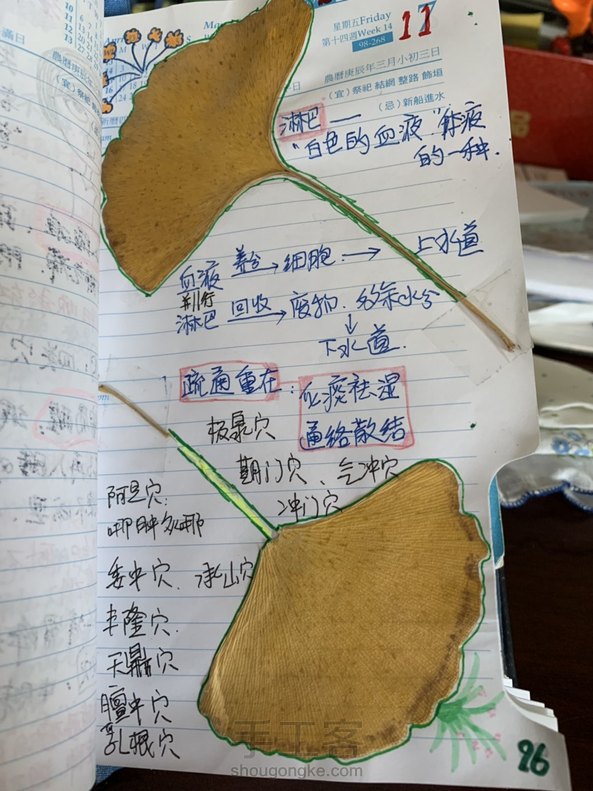 星期五Friday
第十四週Week 14
98-268
17
農曆庚辰年三月小初三日
(宜) 祭祀 結網 整路 飾垣
(忌) 新船進水
淋巴 —
"白色的血液" 体液
的一种.
血液 养分→细胞 → 上水道
並行
淋巴 回收→ 废物. 多余水分
↓
下水道.
疏通重在: 化痰祛湿
通络散结
极泉穴
期门穴、气冲穴
冲门穴
阿是穴.
哪肿处哪
委中穴. 承山穴
丰隆穴.
天鼎穴
膻中穴
乳根穴
26
手工客
shougongke.com